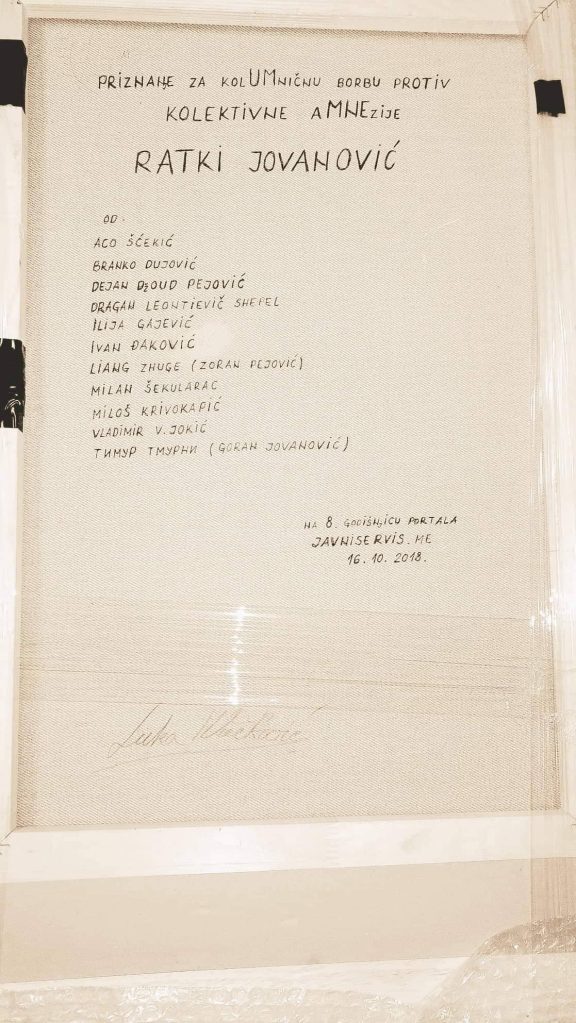 PRIZNAЊE ZA KOLUMNIČNU BORBU PROTIV
KOLEKTIVNE AMNEZIJE
RATKI JOVANOVIĆ
OD:
ACO ŠĆEKIĆ
BRANKO DUJOVIĆ
DEJAN DżOUD PEJOVIĆ
DRAGAN LEONTIEVIČ SHEPEL
ILIJA GAJEVIĆ
IVAN ĐAKOVIĆ
LIANG ZHUGE (ZORAN PEJOVIĆ)
MILAN ŠEKULARAC
MILOŠ KRIVOKAPIĆ
VLADIMIR V. JOKIĆ
ТИМУР ТМУРНИ (GORAN JOVANOVIĆ)
NA 8. GODIŠЊICU PORTALA
JAVNISERVIS.ME
16.10.2018.
Luka